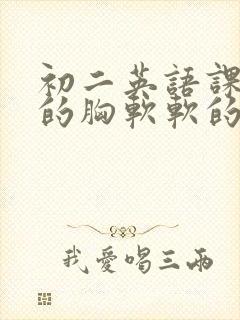 初二英語課
的胸軟軟的
我愛唱三兩